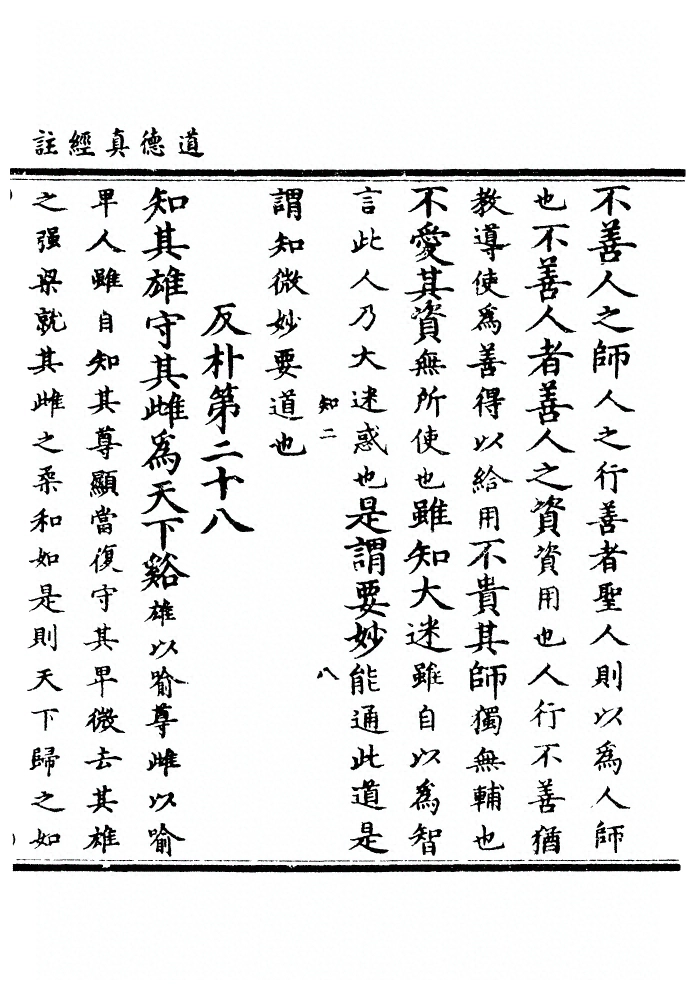 道德真經註
不善人之師人之行善者聖人則以為人師
也不善人者善人之資資用也人行不善猶
教導使為善得以給用不貴其師獨無輔也
不愛其資無所使也雖知大迷雖自以為智
言此人乃大迷惑也是謂要妙能通此道是
知二
八
謂知微妙要道也
反朴第二十八
知其雄守其雌為天下谿雄以喻尊雌以喻
卑人雖自知其尊顯當復守其卑微去其雄
之强梁就其雌之柔和如是則天下歸之如